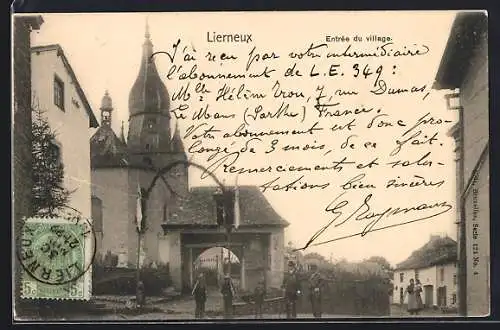 Lierneux
Entrée du village.
J'ai reçu par votre intermédiaire
l'abonnement de L.E. 349:
Mlle Hélène Trou, 7, rue Dumas,
Le Mans (Sarthe) France.
Votre abonnement est donc pro-
longé de 3 mois, de ce fait.
Remerciements et salu-
tations bien sincères
G. Raymans
LIERNEUX
5 5
Bruxelles, Série 123 No. 4